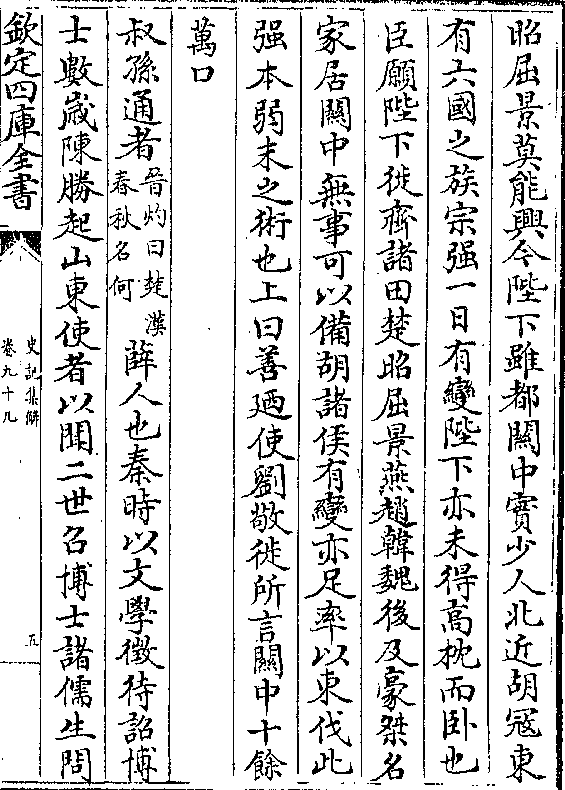 昭屈景莫能興今陛下雖都關中實少人北近胡冦東
有六國之族宗强一日有變陛下亦未得髙枕而卧也
臣願陛下徙齊諸田楚昭屈景燕趙韓魏後及豪桀名
家居關中無事可以備胡諸侯有變亦足率以東伐此
强本弱末之術也上曰善廼使劉敬徙所言關中十餘
萬口
叔孫通者晉灼曰楚漢春秋名何薛人也秦時以文學徴待詔博
士數嵗陳勝起山東使者以聞二世召博士諸儒生問
欽定四庫全書
史記集解
卷九十九
五